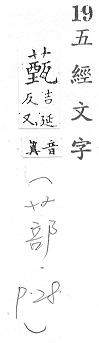 19五經文字
薽
吉延
反又
音眞
(艹部·p.28.)